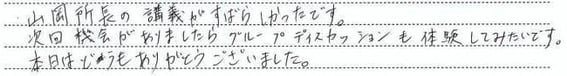 山岡所長の講義がすばらしかったです。
次回機会がありましたらグループディスカッションも体験してみたいです。
本日はどうもありがとうございました。